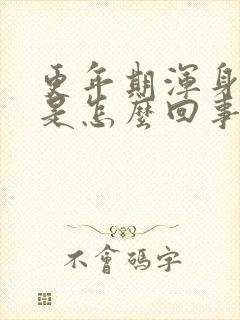 更年期渾身
是怎麼回事
不會碼字